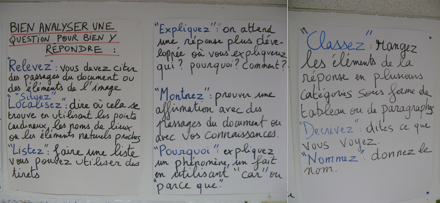 BIEN ANALYSER UNE
QUESTION POUR BIEN Y
RÉPONDRE :
"Relevez": vous devez citer
des passages du document ou
des éléments de l'image
"Situez"
"Localisez": dire où cela se
trouve en utilisant les points
cardinaux, les noms de lieux
ou les éléments naturels proches
"Listez": faire une liste
vous pouvez utiliser des
tirets
"Expliquez": on attend
une réponse plus déve-
loppée où vous expliquerez
qui? pourquoi? comment?
"Montrez": prouver une
affirmation avec des
passages du document ou
avec vos connaissances
"Pourquoi": expliquez
un phénomène, un fait
en utilisant "car" ou
"parce que"
"Classez": rangez
les éléments de la
réponse en plusieurs
catégories sous forme de
tableau ou de paragraphe
"Décrivez": dites ce que
vous voyez.
"Nommez": donnez le
nom.